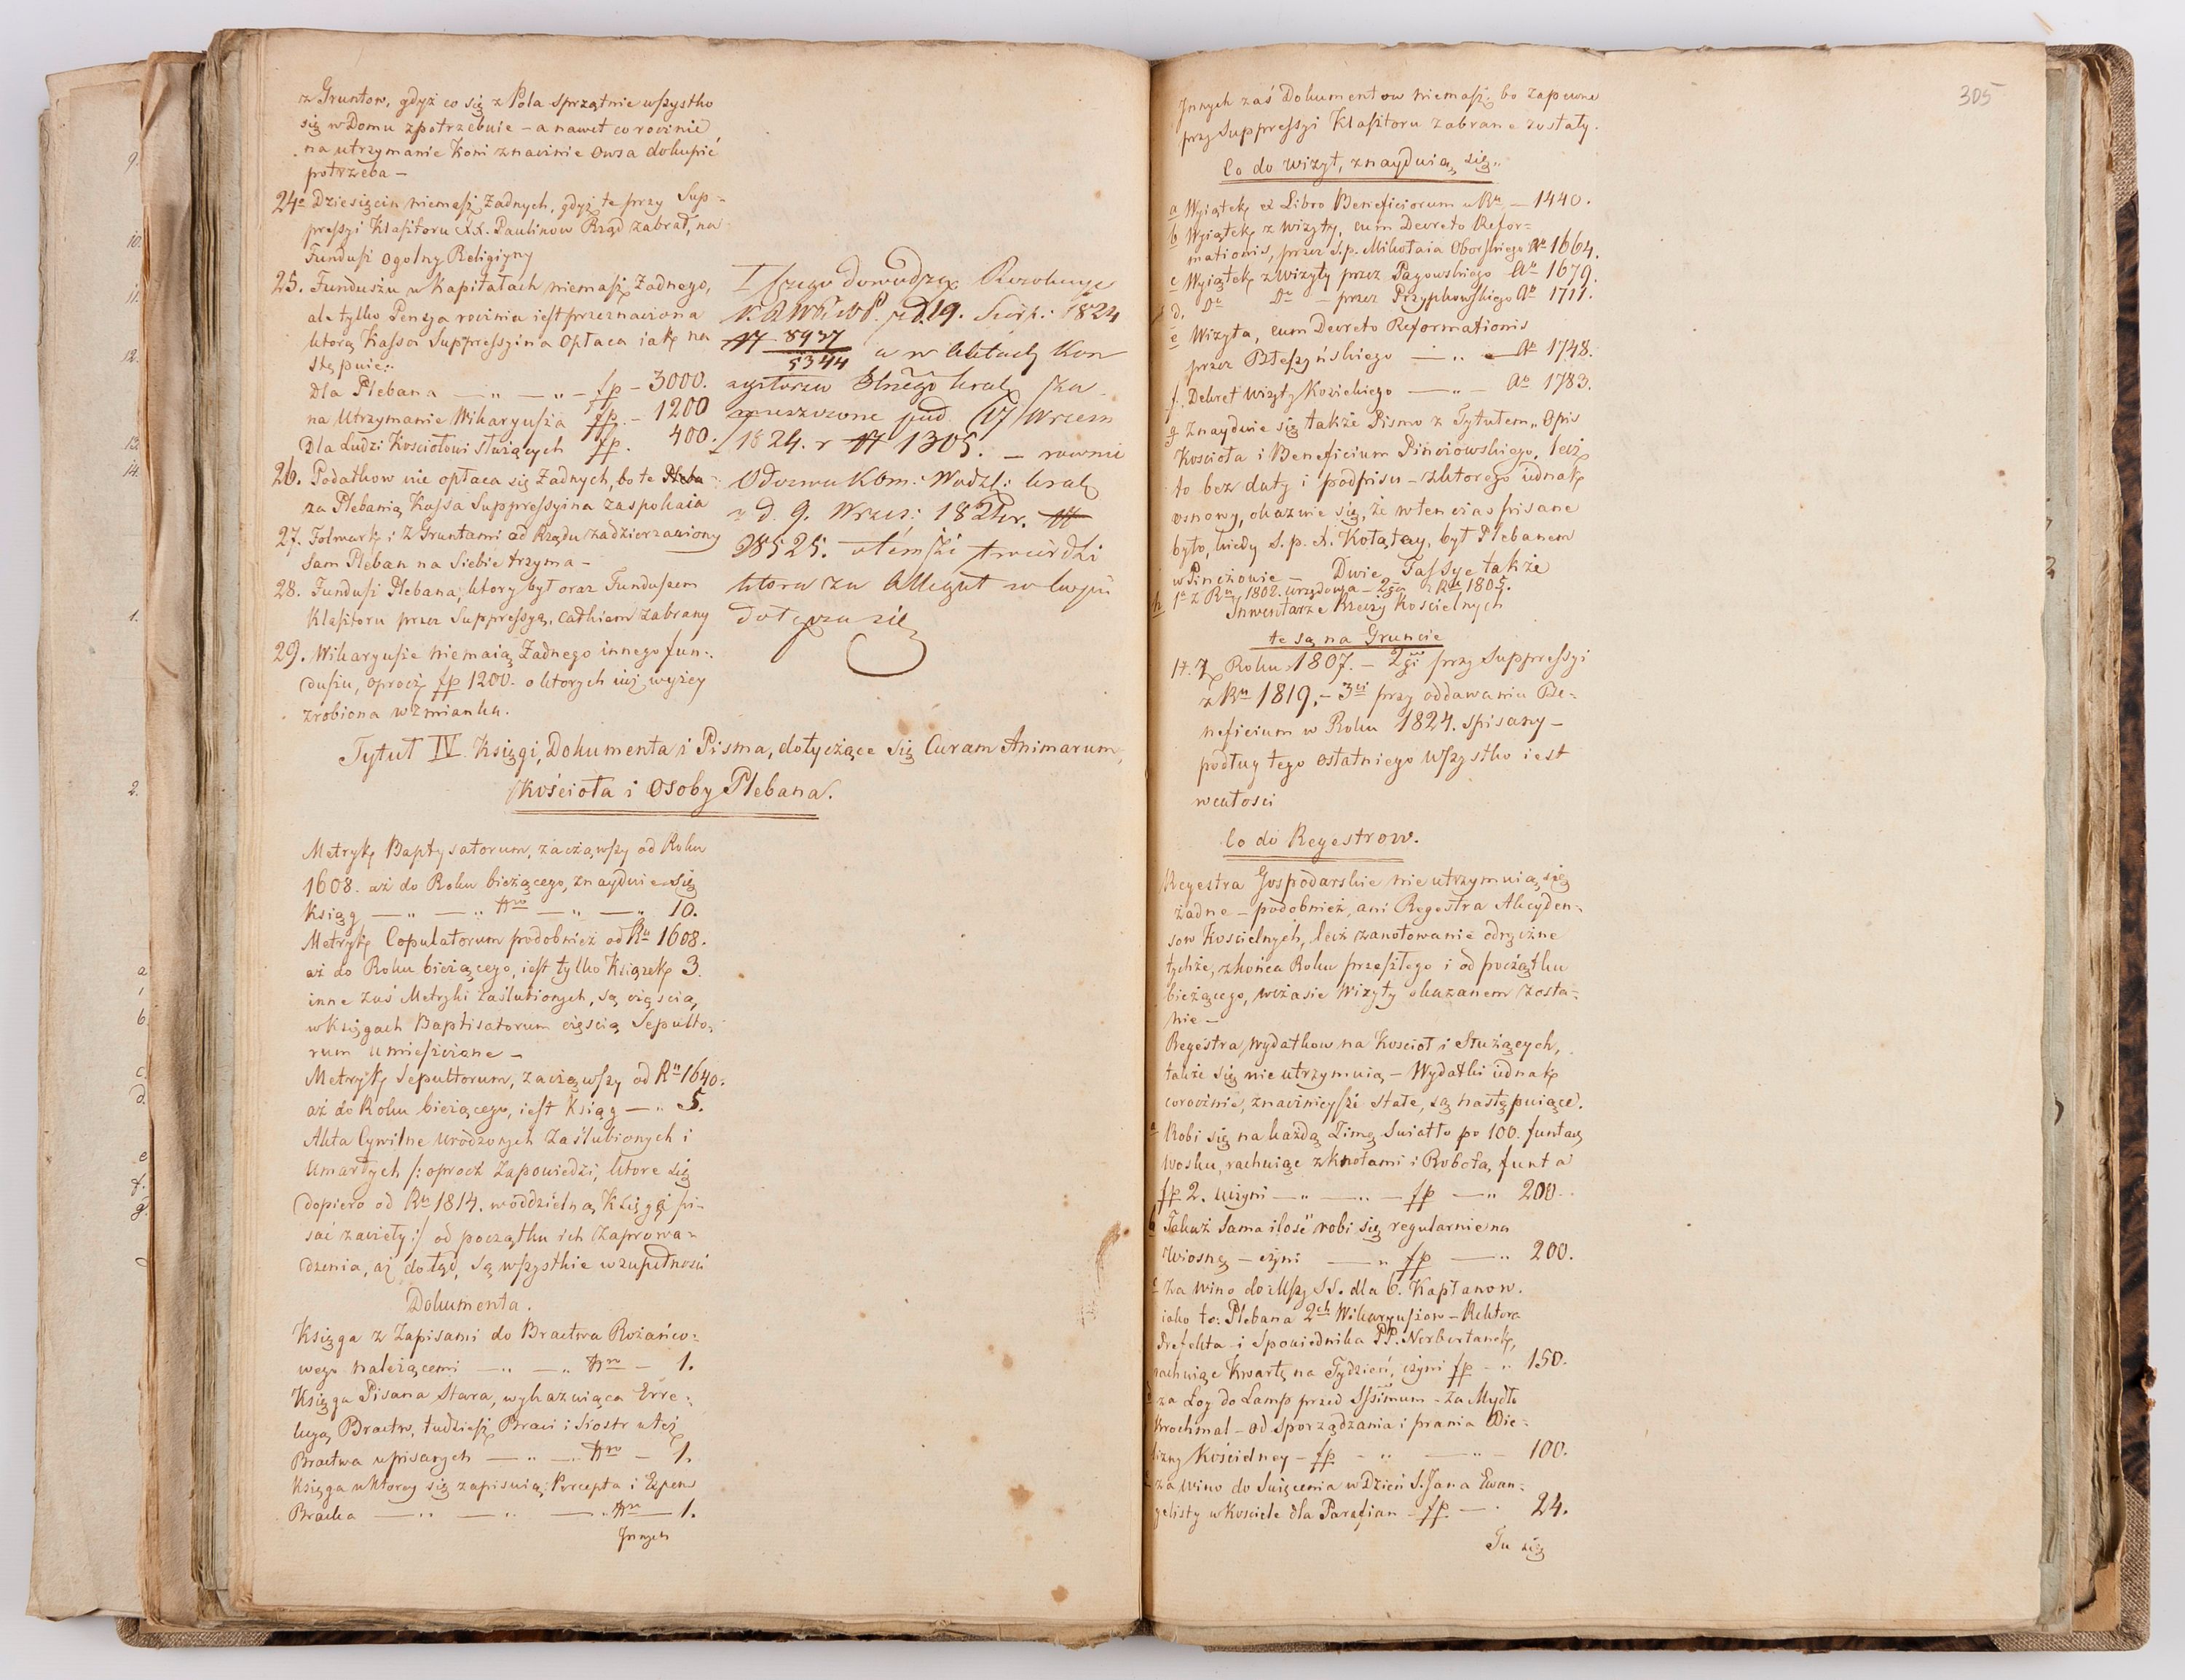 z Gruntow, gdyż co się z Pola sprzątnie wszystko
się w Domu zpotrzebuie – a nawet corocznie
na utrzymanie Koni znacznie Owsa dokupić
potrzeba –
24o Dziesięcin niemasz Żadnych, gdyż te przy Sup-
pressyi Klasztoru XX. Paulinow Rząd zabrał, na
Fundusz Ogolny Religiyny
25. Funduszu w Kapitałach niemasz Żadnego,
ale tylko Pensya rocznia iest przeznaczona
ktorą Kassa Suppressyina Opłaca iak na
stępuie:
Dla Plebana — " — " – fp – 3000.
na Utrzymanie Wikaryusza fp. – 1200
Dla Ludzi Kosciołowi Służących fp. 400.
26. Podatkow nie opłaca się Żadnych, bo te
za Plebanią Kassa Suppressyina zaspokaia
27. Folwark i z Gruntami od Rządu zadzierzawiony
sam Pleban na Siebie trzyma –
28. Fundusz Plebana, ktory był oraz Funduszem
Klasztoru przez Suppressyą, Całkiem zabrany
29. Wikaryusze niemaią Żadnego innego fun-
duszu, oprocz fp 1200. o ktorych iuż wyżey
zrobiona wzmianka.
I szego dowodzą Rezolucye
19. Sierp: 1824
8937
5344 a w Aktach Kon
systorza
mieszczone pod 17 Wrzes
1824. r N 1305. – rownie
Odezwa Kom: Wodzt: krak
z d. 9. Wrzes: 182 r. N
25. otémże twierdzi
ktora za Allegat
dołącza się
Tytuł IV Księgi, Dokumenta i Pisma, dotyczące się Curam Animarum,
Kościoła i Osoby Plebana.
Metryk Baptysatorum, zacząwszy od Roku
1608. aż do Roku bieżącego, znayduie się
Ksiąg — " — " Nro — " — " 10.
Metryk Copulatorum podobnież od Ru 1608.
aż do Roku bieżącego, iest tylko Książek 3.
inne zaś Metryki Zaślubionych, są częścią,
w Księgach Baptisatorum częścią Sepulto-
rum umieszczone –
Metryk Sepultorum, zacząwszy od Ru 1640.
aż do Roku bieżącego, iest Ksiąg — " 5.
Akta Cywilne Urodzonych Zaślubionych i
Umarłych /: oprocz Zapowiedzi, ktore się
dopiero od Ru 1814. w oddzielną Księgę pi-
sać zaczęły :/ od początku ich Zaprowa-
dzenia, aż dotąd, są wszystkie w zupełności
Dokumenta.
Księga z Zapisami do Bractwa Rożańco-
wego należącemi — " — " Nro – 1.
Księga Pisana Stara, wykazuiąca Erre-
kcyą Bractw, tudzież Braci i Siostr w też
Bractwa wpisanych — " — " Nro – 1.
Księga w ktorey się zapisuią: Percepta i Expens
Bracka — " — " — " Nro — 1.
Innych
305
Innych zaś Dokumentow niemasz, bo Zapewne
przy Suppressyi Klasztoru zabrane zostały.
Co do wizyt, znayduią się "
a Wyiątek ex Libro Beneficiorum w Ru — 1440.
b Wyiątek z wizyty, cum Decreto Refor-
mationis, przez S.p. Mikołaia Oborskiego Ao 1664.
c Wyiątek z wizyty przez Pągowskiego Ao 1679.
d. Do Do – przez Przypkowskiego Ao 1711.
e Wizyta, cum Decreto Reformationis
przez Błeszyńskiego — " — Ao 1748.
f. Dekret wizyty Kozickiego — " – Ao 1783.
g Znayduie się także Pismo z Tytułem " Opis
Kościoła i Beneficium Pinczowskiego, lecz
to bez daty i podpisu – z ktorego iednak
osnowy, okazuie się, że w ten czas pisane
było, kiedy S. p. X. Kołątay, był Plebanem
w Pinczowie – Dwie Tassye także
1a z Ru 1802. urzędowa – 2ga z Ru 1805.
h Inwentarze Rzeczy Koscielnych
te są na Gruncie
1. Z Roku 1807. – 2gi przy Suppressyi
z Ru 1819. – 3ci przy oddawaniu Be-
neficium w Roku 1824. spisany –
podług tego ostatniego wszystko iest
w całosci
Co do Regestrow.
Regestra Gospodarskie nie utrzymuią się
żadne – podobnież, ani Regestra Akcyden-
sow Koscielnych, lecz zanotowanie odręczne
tychże, z końca Roku przeszłego i od początku
bieżącego, w czasie Wizyty okazanem zosta-
nie –
Regestra, wydatkow na Kościoł i Służących,
także się nie utrzymuią – Wydatki iednak
corocznie, znacznieysze stałe, są następuiące.
a Robi się na każdą Zimę Swiatło po 100. funtow
Wosku, rachuiąc z knotami i Robotą, funt a
fp 2. uczyni — " — " – fp — " 200.
b Takaż sama ilosć robi się regularnie na
Wiosnę – czyni — " fp — " 200.
c Za wino do Mszy SS. dla 6. Kapłanow.
iako to: Plebana 2ch Wikaryuszow – Rektora
Prefekta – i Spowiednika PP. Norbertanek,
rachuiąc Kwartę na Tydzień, czyni fp – " 150.
d za Loy do Lamp przed SSsimum – za Mydło
Krochmal – od sporządzania i prania Bie-
lizny Kościelney – fp – " — " – 100.
e za wino do Święcenia w Dzień S. Jana Ewan-
gelisty w Kosciele dla Parafian fp — . 24.
Tu się